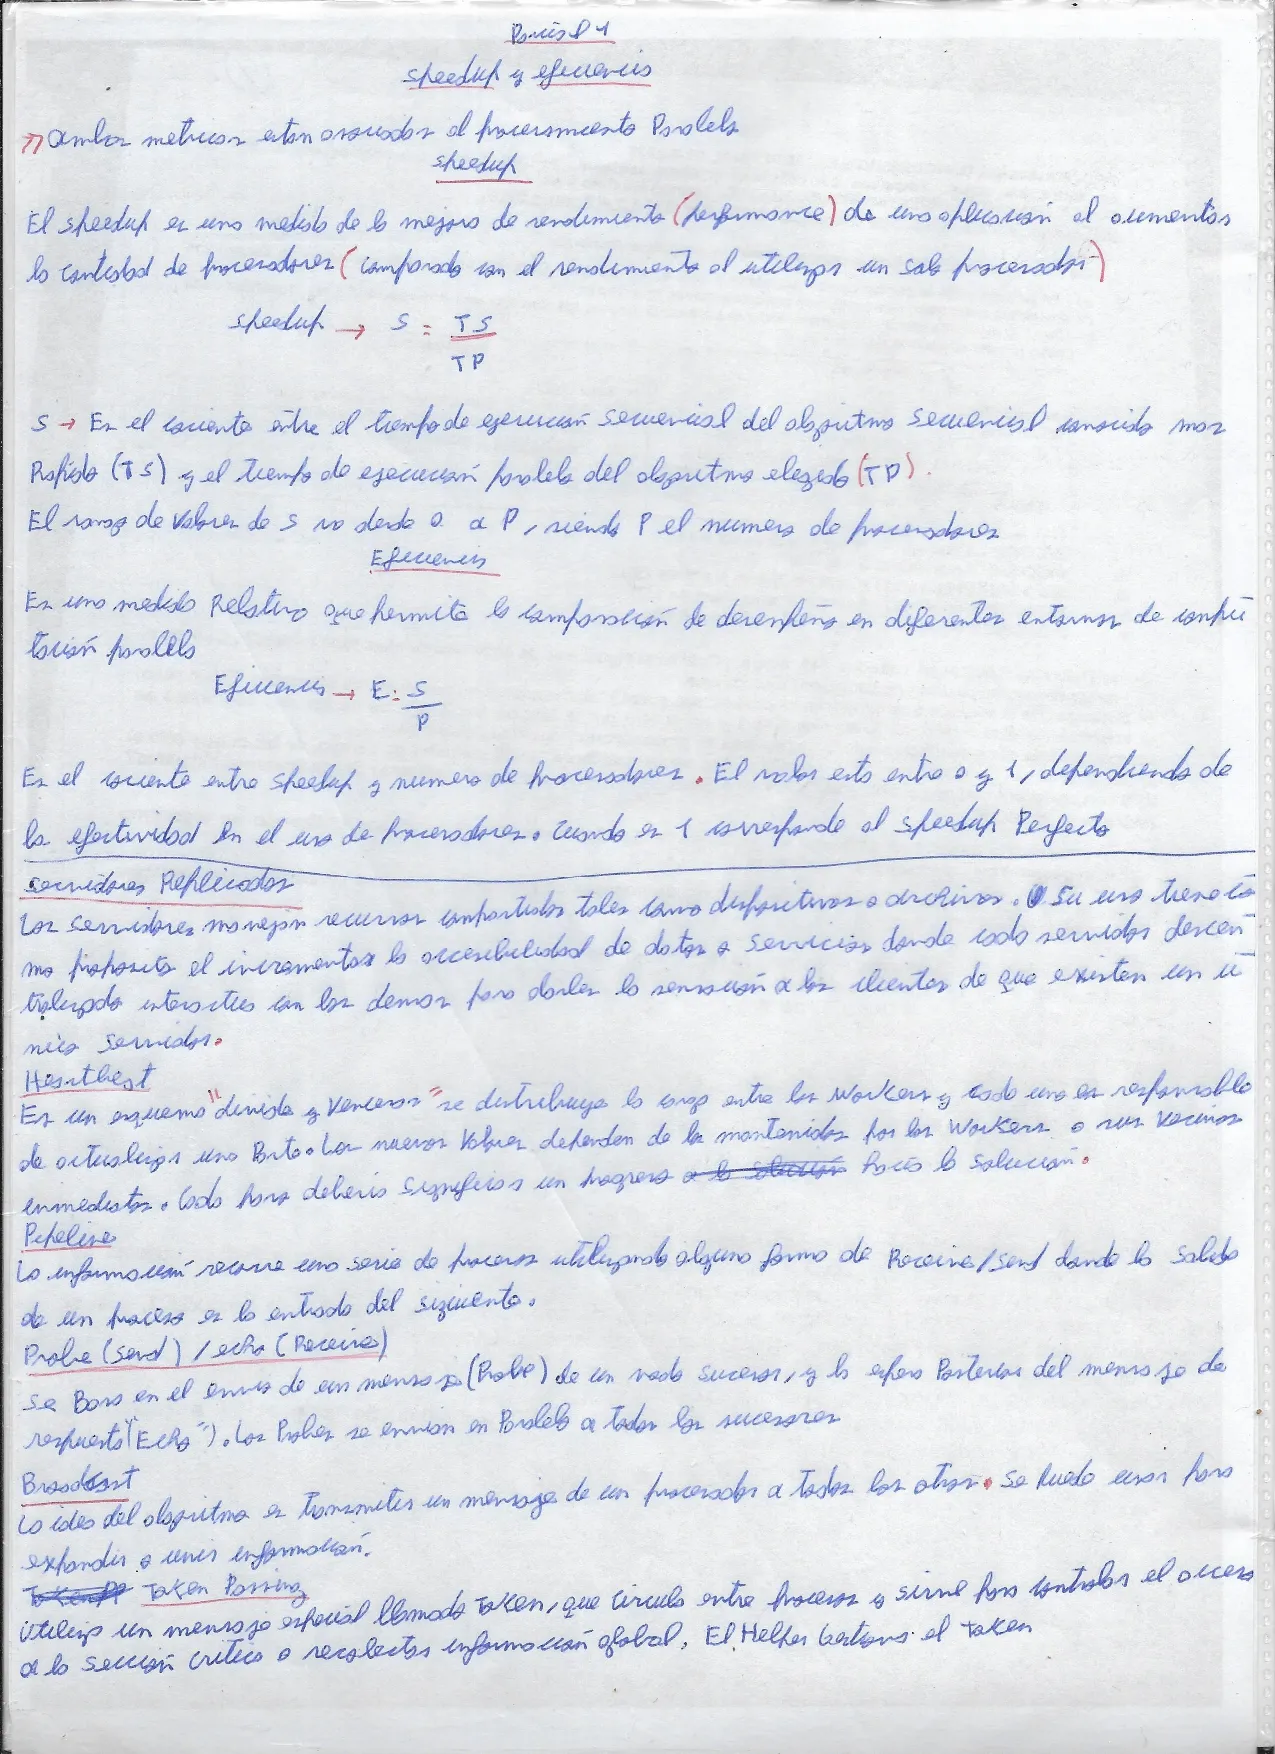 Parcial 1
speedup y eficiencia
Ambas metricas estan asociadas al procesamiento Paralelo
speedup
El speedup es una medida de la mejora de rendimiento (performance) de una aplicación al aumentar
la cantidad de procesadores (comparado con el rendimiento al utilizar un solo procesador)
speedup → S = TS
TP
S → Es el cociente entre el tiempo de ejecución secuencial del algoritmo secuencial conocido mas
Rapido (TS) y el tiempo de ejecución paralelo del algoritmo elegido (TP).
El rango de valores de S va desde 0 a P, siendo P el numero de procesadores
Eficiencia
Es una medida Relativa que permite la comparación de desempeño en diferentes entornos de compu
tación paralelo
Eficiencia → E: S
P
Es el cociente entre speedup y numero de procesadores. El valor esta entre 0 y 1, dependiendo de
la efectividad en el uso de procesadores. Cuando es 1 corresponde al speedup Perfecto
Servidores Replicados
Los servidores manejan recursos compartidos tales como dispositivos o archivos. Su uso tiene co
mo proposito el incrementar la accesibilidad de datos o servicios donde cada servidor descen
tralizado interactua con los demas para darles la sensación a los clientes de que existen un u
nico servidor.
Heartbeat
Es un esquema "divide y venceras" se distribuye la carga entre los workers y cada uno es responsable
de actualizar una Parte. Los nuevos valores dependen de los mantenidos por los workers o sus vecinos
inmediatos. Cada paso deberia significar un progreso a la solución hacia la solución.
Pipeline
La información recorre una serie de procesos utilizando alguna forma de Receive/Send donde la salida
de un proceso es la entrada del siguiente.
Probe (Send) / echo (Receive)
Se Basa en el envio de un mensaje (Probe) de un nodo sucesor, y la espera Posterior del mensaje de
respuesta ("Echo"). Los Probes se envian en Paralelo a todos los sucesores
Broadcast
La idea del algoritmo es transmitir un mensaje de un procesador a todos los otros. Se puede usar para
expandir o unir información.
Token Passing
Utiliza un mensaje especial llamado Token, que circula entre procesos y sirve para controlar el acceso
a la sección critica o recolectar información global. El Helper Gestiona el Token